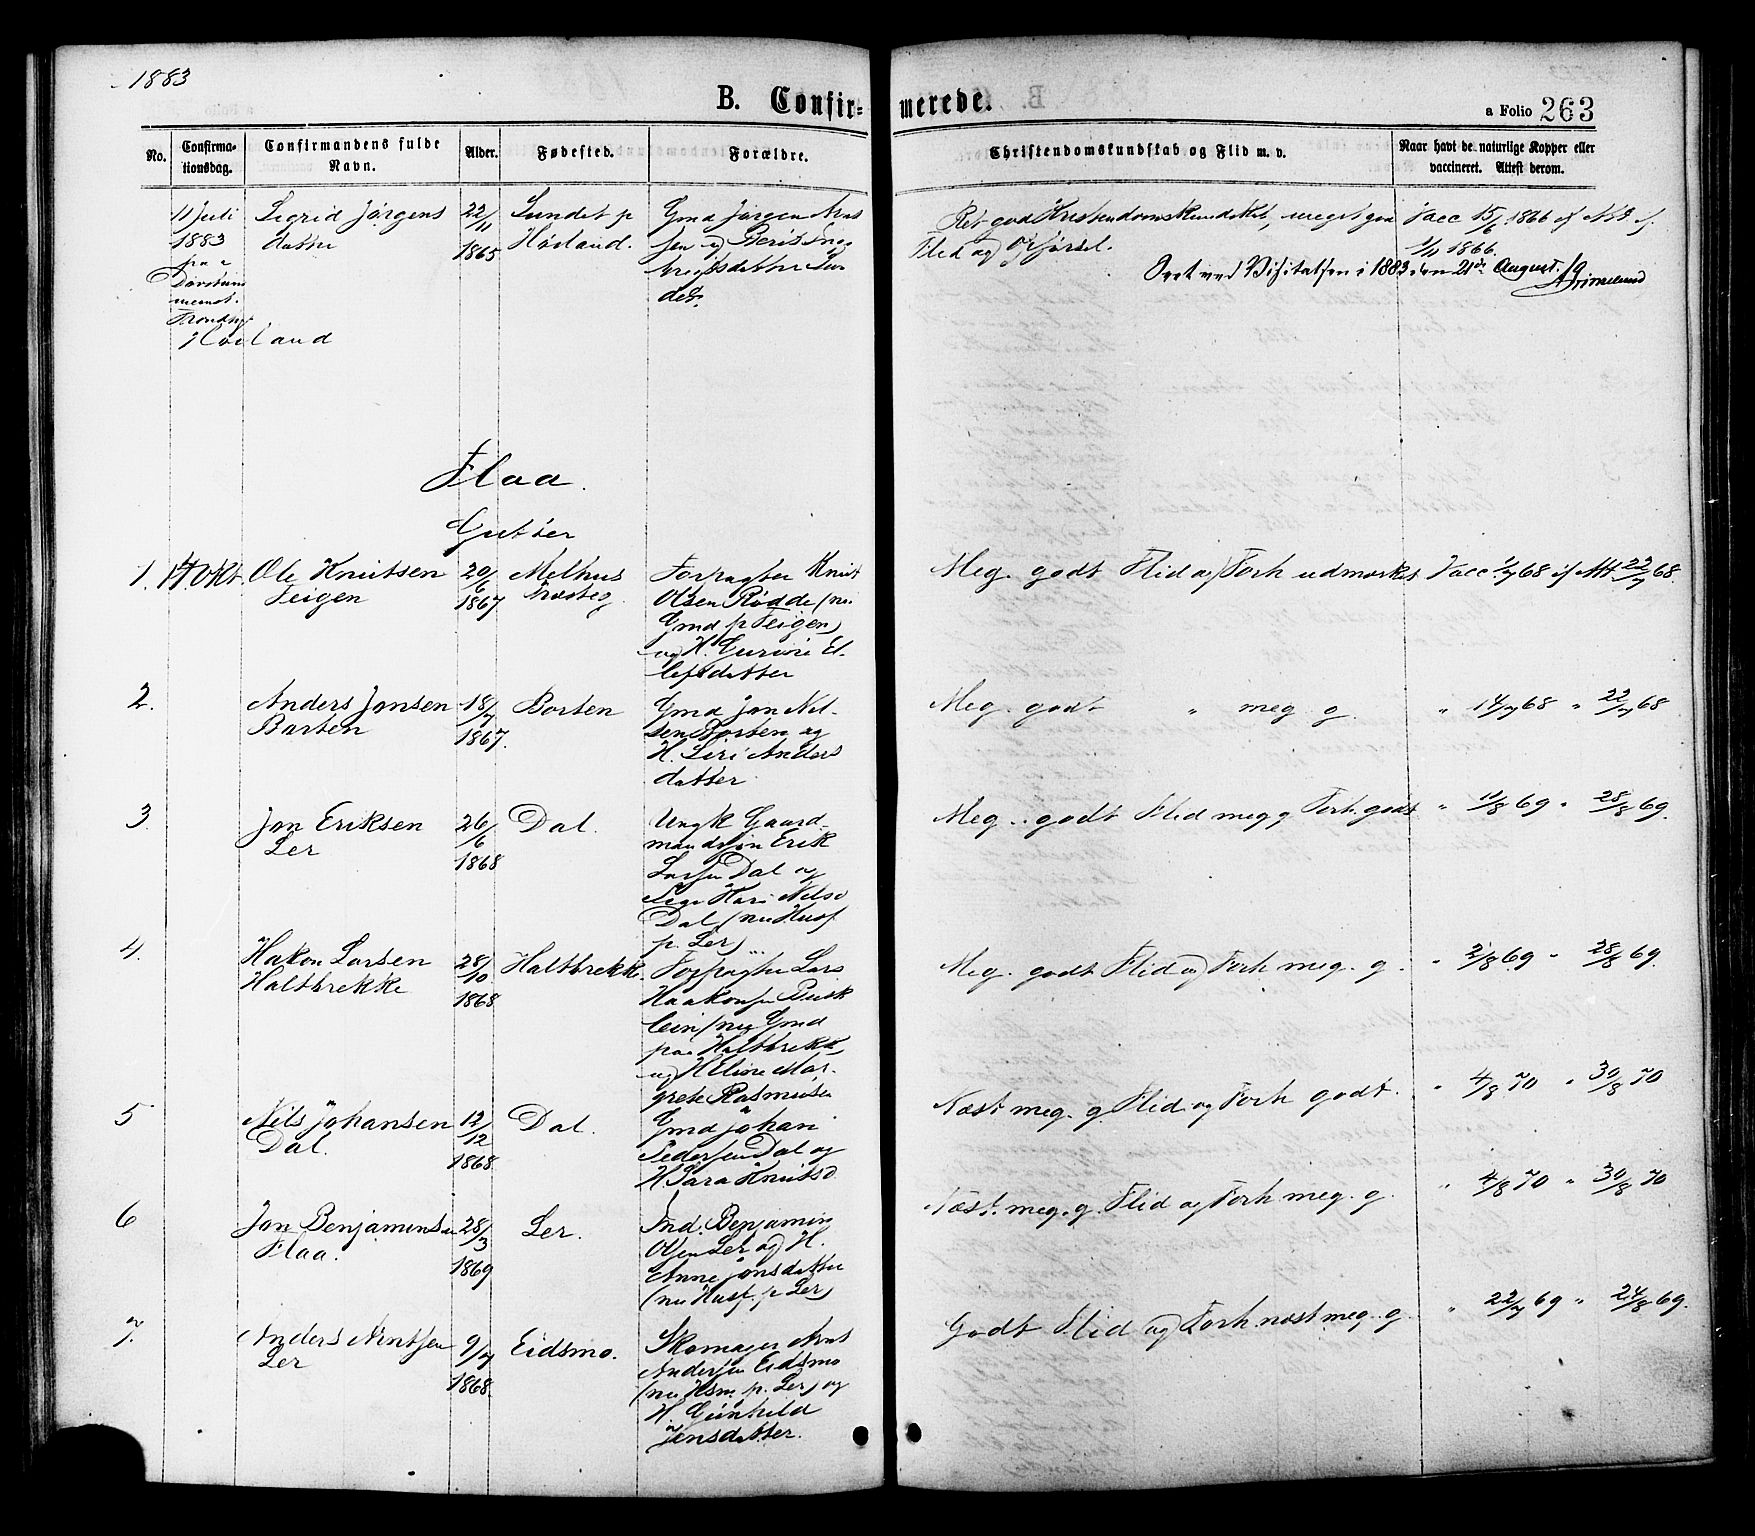 1883
B. Confir-
merede.
a Folio 263
No.
Confirma-
tionsdag.
Confirmandens fulde
Navn.
Alder.
Fødested.
Forældre.
Christendomskundskab og Flid m. v.
Naar havt de naturlige Kopper eller
vaccineret. Attest derom.
11 Juli Sigrid Jørgens 22/11 Sundet p Gmd Jørgen Arnt
1883 datter 1865 Høiland. sen og Berit
Høiland
Ret god Kristendomskundskab, meget god Vacc 15/6 1866
Flid og Opførsel. 1866.
Seet ved Visitatsen i 1883 den 21de August. Grimelund
Flaa.
Gutter
1. 14 Okt. Ole Knutsen 20/6 Melhus Forpagter Knut
Teigen 1867 Olsen Rødde (nu
Gmd p Teigen)
og H. Gurine El-
lefsdatter
Meg. godt Flid og Forh udmærket Vacc 68 if Att 22/7 68.
2. Anders Jonsen 18/7 Borten Gmd Jon Nil-
Borten 1867. sen Borten og
H. Siri Anders
datter
Meg. godt " meg g. " 14/7 68 " 22/7 68
3. Jon Eriksen 26/6 Dal. Ungk Gaard-
Ler 1868 mandssøn Erik
Larsen Dal og
Pige Kari Nilsd
Dal (nu Husf
p. Ler)
Meg. godt Flid meg g Forh. godt " 11/8 69 " 28/8 69.
4. Hakon Larsen 28/10 Haltbrekke. Forpagter Lars
Haltbrekke 1868 Haakonsen Busk
lein (nu Gmd
paa Haltbrekk)
og H Eline Mar-
grete Rasmusen
Meg. godt Flid og Forh meg. g. " 2/8 69 " 28/8 69.
5 Nils Johansen 12/12 Dal. Gmd Johan
Dal. 1868. Pedersen Dal og
H. Sara Knutsd
Næst meg. g. Flid og Forh godt. " 4/8 70 " 30/8 70
6 Jon Benjaminsen 28/3 Ler. Ind. Benjamin
Flaa. 1869 Olsen Ler og H.
Anne Jonsdatter
(nu Husf. p Ler)
Næst. meg. g. Flid og Forh meg. g. " 4/8 70 " 30/8 70
7. Anders Arntsen 9/7 Eidsmo. Skomager Arnt
Ler 1868. Andersen Eidsmo
(nu Hsm. p. Ler) og
H. Gunhild
Jensdatter.
Godt Flid og Forh næst meg. g. " 22/7 69 " 24/8 69.